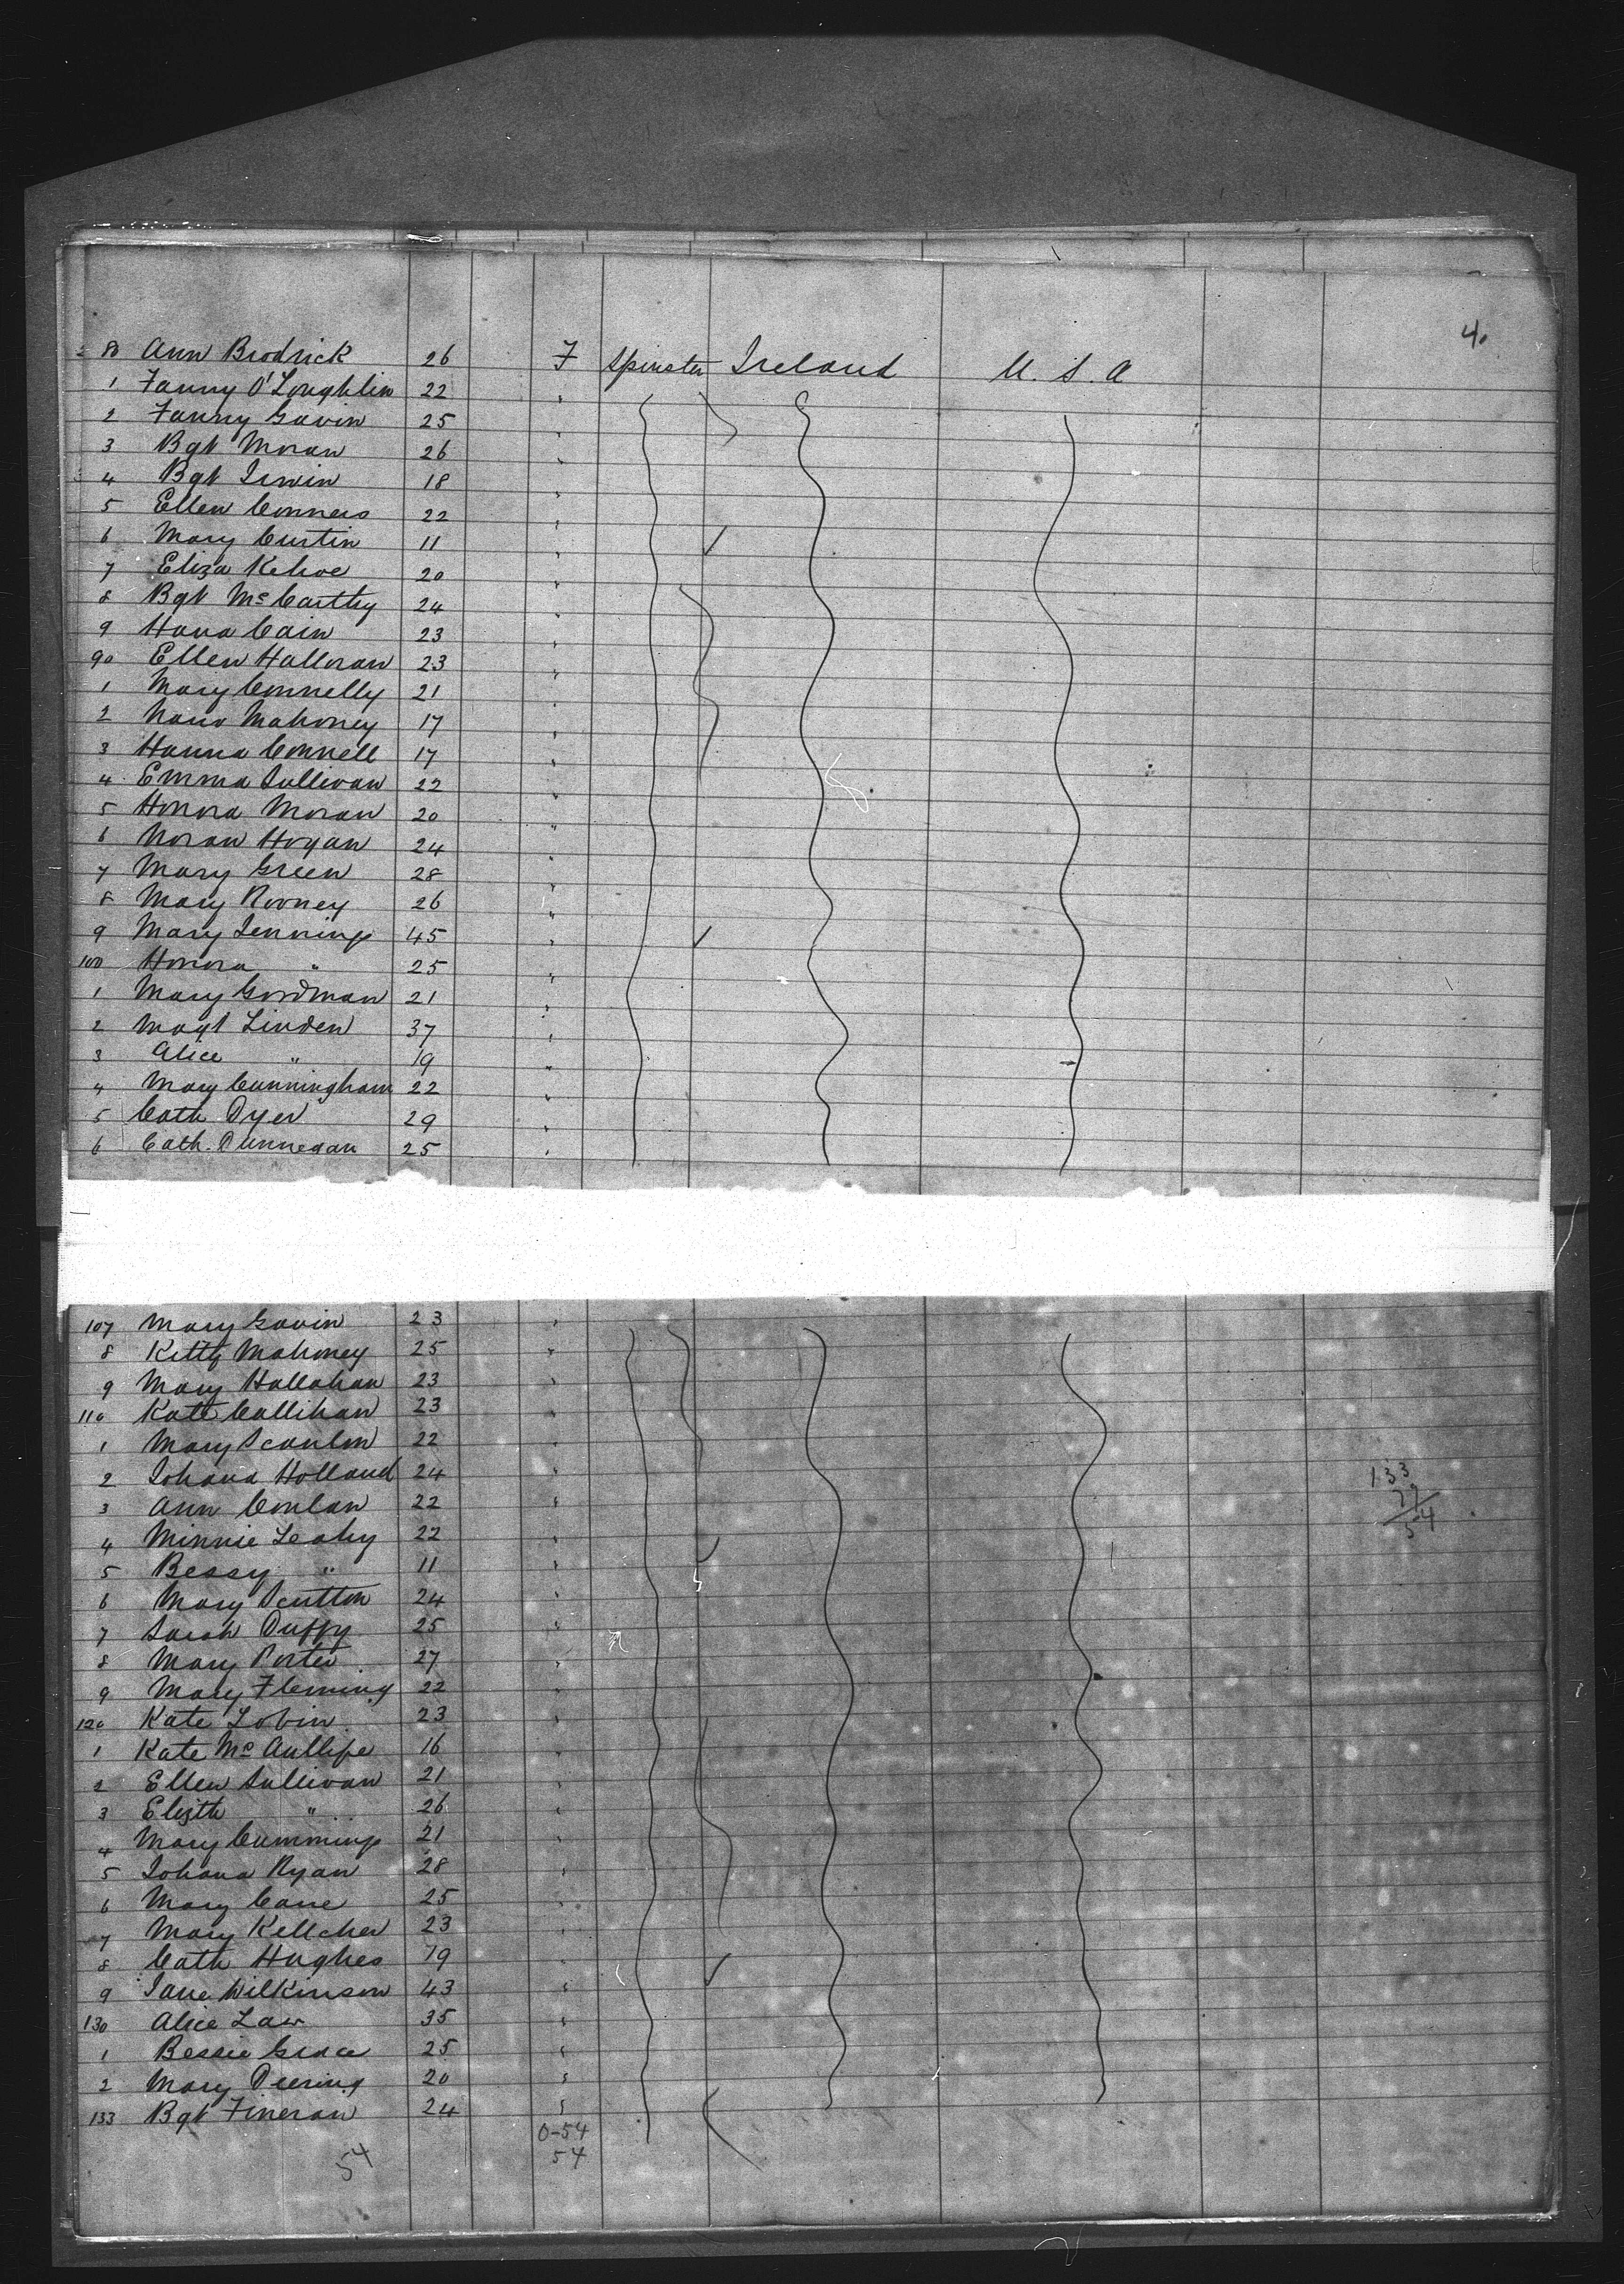 4.
80 Ann Brodrick 26 F Spinster Ireland U.S.A
1 Fanny O'Loughlin 22 "
2 Fanny Gavin 25 "
3 Bgt Moran 26 "
4 Bgt Irwin 18 "
5 Ellen Conners 22 "
6 Mary Curtin 11 "
7 Eliza Kehoe 20 "
8 Bgt McCarthy 24 "
9 Hana Cain 23 "
90 Ellen Halloran 23 "
1 Mary Connelly 21 "
2 Nano Mahoney 17 "
3 Hanna Connell 17 "
4 Emma Sullivan 22 "
5 Honora Moran 20 "
6 Noran Hogan 24 "
7 Mary Green 28 "
8 Mary Rooney 26 "
9 Mary Jennings 45 "
100 Honora " 25 "
1 Mary Goodman 21 "
2 Magt Linden 37 "
3 Alice " 19 "
4 Mary Cunningham 22 "
5 Cath Dyer 29 "
6 Cath. Dunnegan 25 "
107 Mary Gavin 23 "
8 Kitty Mahoney 25 "
9 Mary Hallahan 23 "
110 Kate Callihan 23 "
1 Mary Scanlon 22 "
2 Johana Holland 24 "
133
79
54
3 Ann Conlan 22 "
4 Minnie Leahy 22 "
5 Bessy " 11 "
6 Mary Scutton 24 "
7 Sarah Duffy 25 "
8 Mary Porter 27 "
9 Mary Fleming 22 "
120 Kate Tobin 23 "
1 Kate McAullife 16 "
2 Ellen Sullivan 21 "
3 Elizth " 26 "
4 Mary Cummings 21 "
5 Johana Ryan 28 "
6 Mary Cane 25 "
7 Mary Kellcher 23 "
8 Cath Hughes 19 "
9 Jane Wilkinson 43 "
130 Alice Law 35 "
1 Bessie Grace 25 "
2 Mary Deering 20 "
133 Bgt Fineran 24 "
0-54
54 54